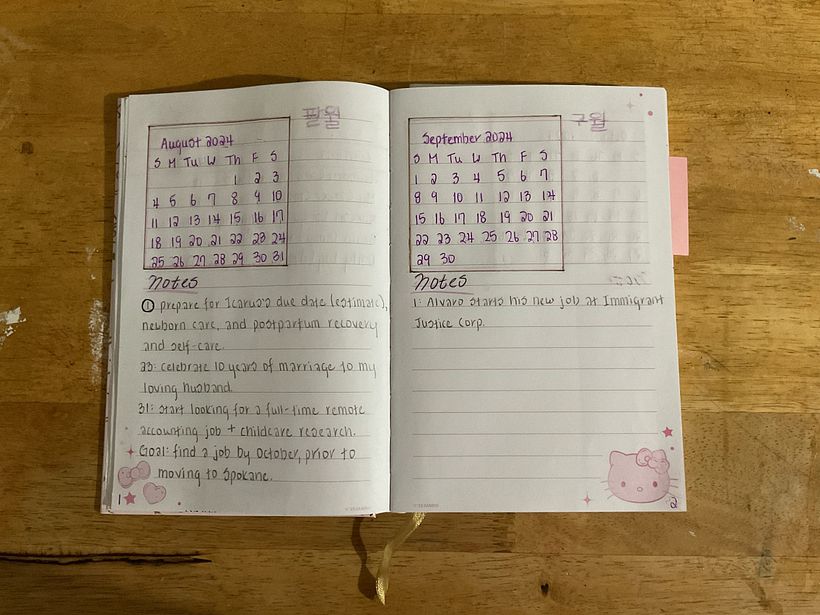 팔월
August 2024
S M Tu W Th F S
1 2 3
4 5 6 7 8 9 10
11 12 13 14 15 16 17
18 19 20 21 22 23 24
25 26 27 28 29 30 31
Notes
1 prepare for Icarus's due date (estimate),
newborn care, and postpartum recovery
and self-care.
23: celebrate 10 years of marriage to my
loving husband.
31: start looking for a full-time remote
accounting job + childcare research.
Goal: find a job by October, prior to
moving to Spokane.
1
구월
September 2024
S M Tu W Th F S
1 2 3 4 5 6 7
8 9 10 11 12 13 14
15 16 17 18 19 20 21
22 23 24 25 26 27 28
29 30
Notes
1: Alvaro starts his new job at Immigrant
Justice Corp.
2